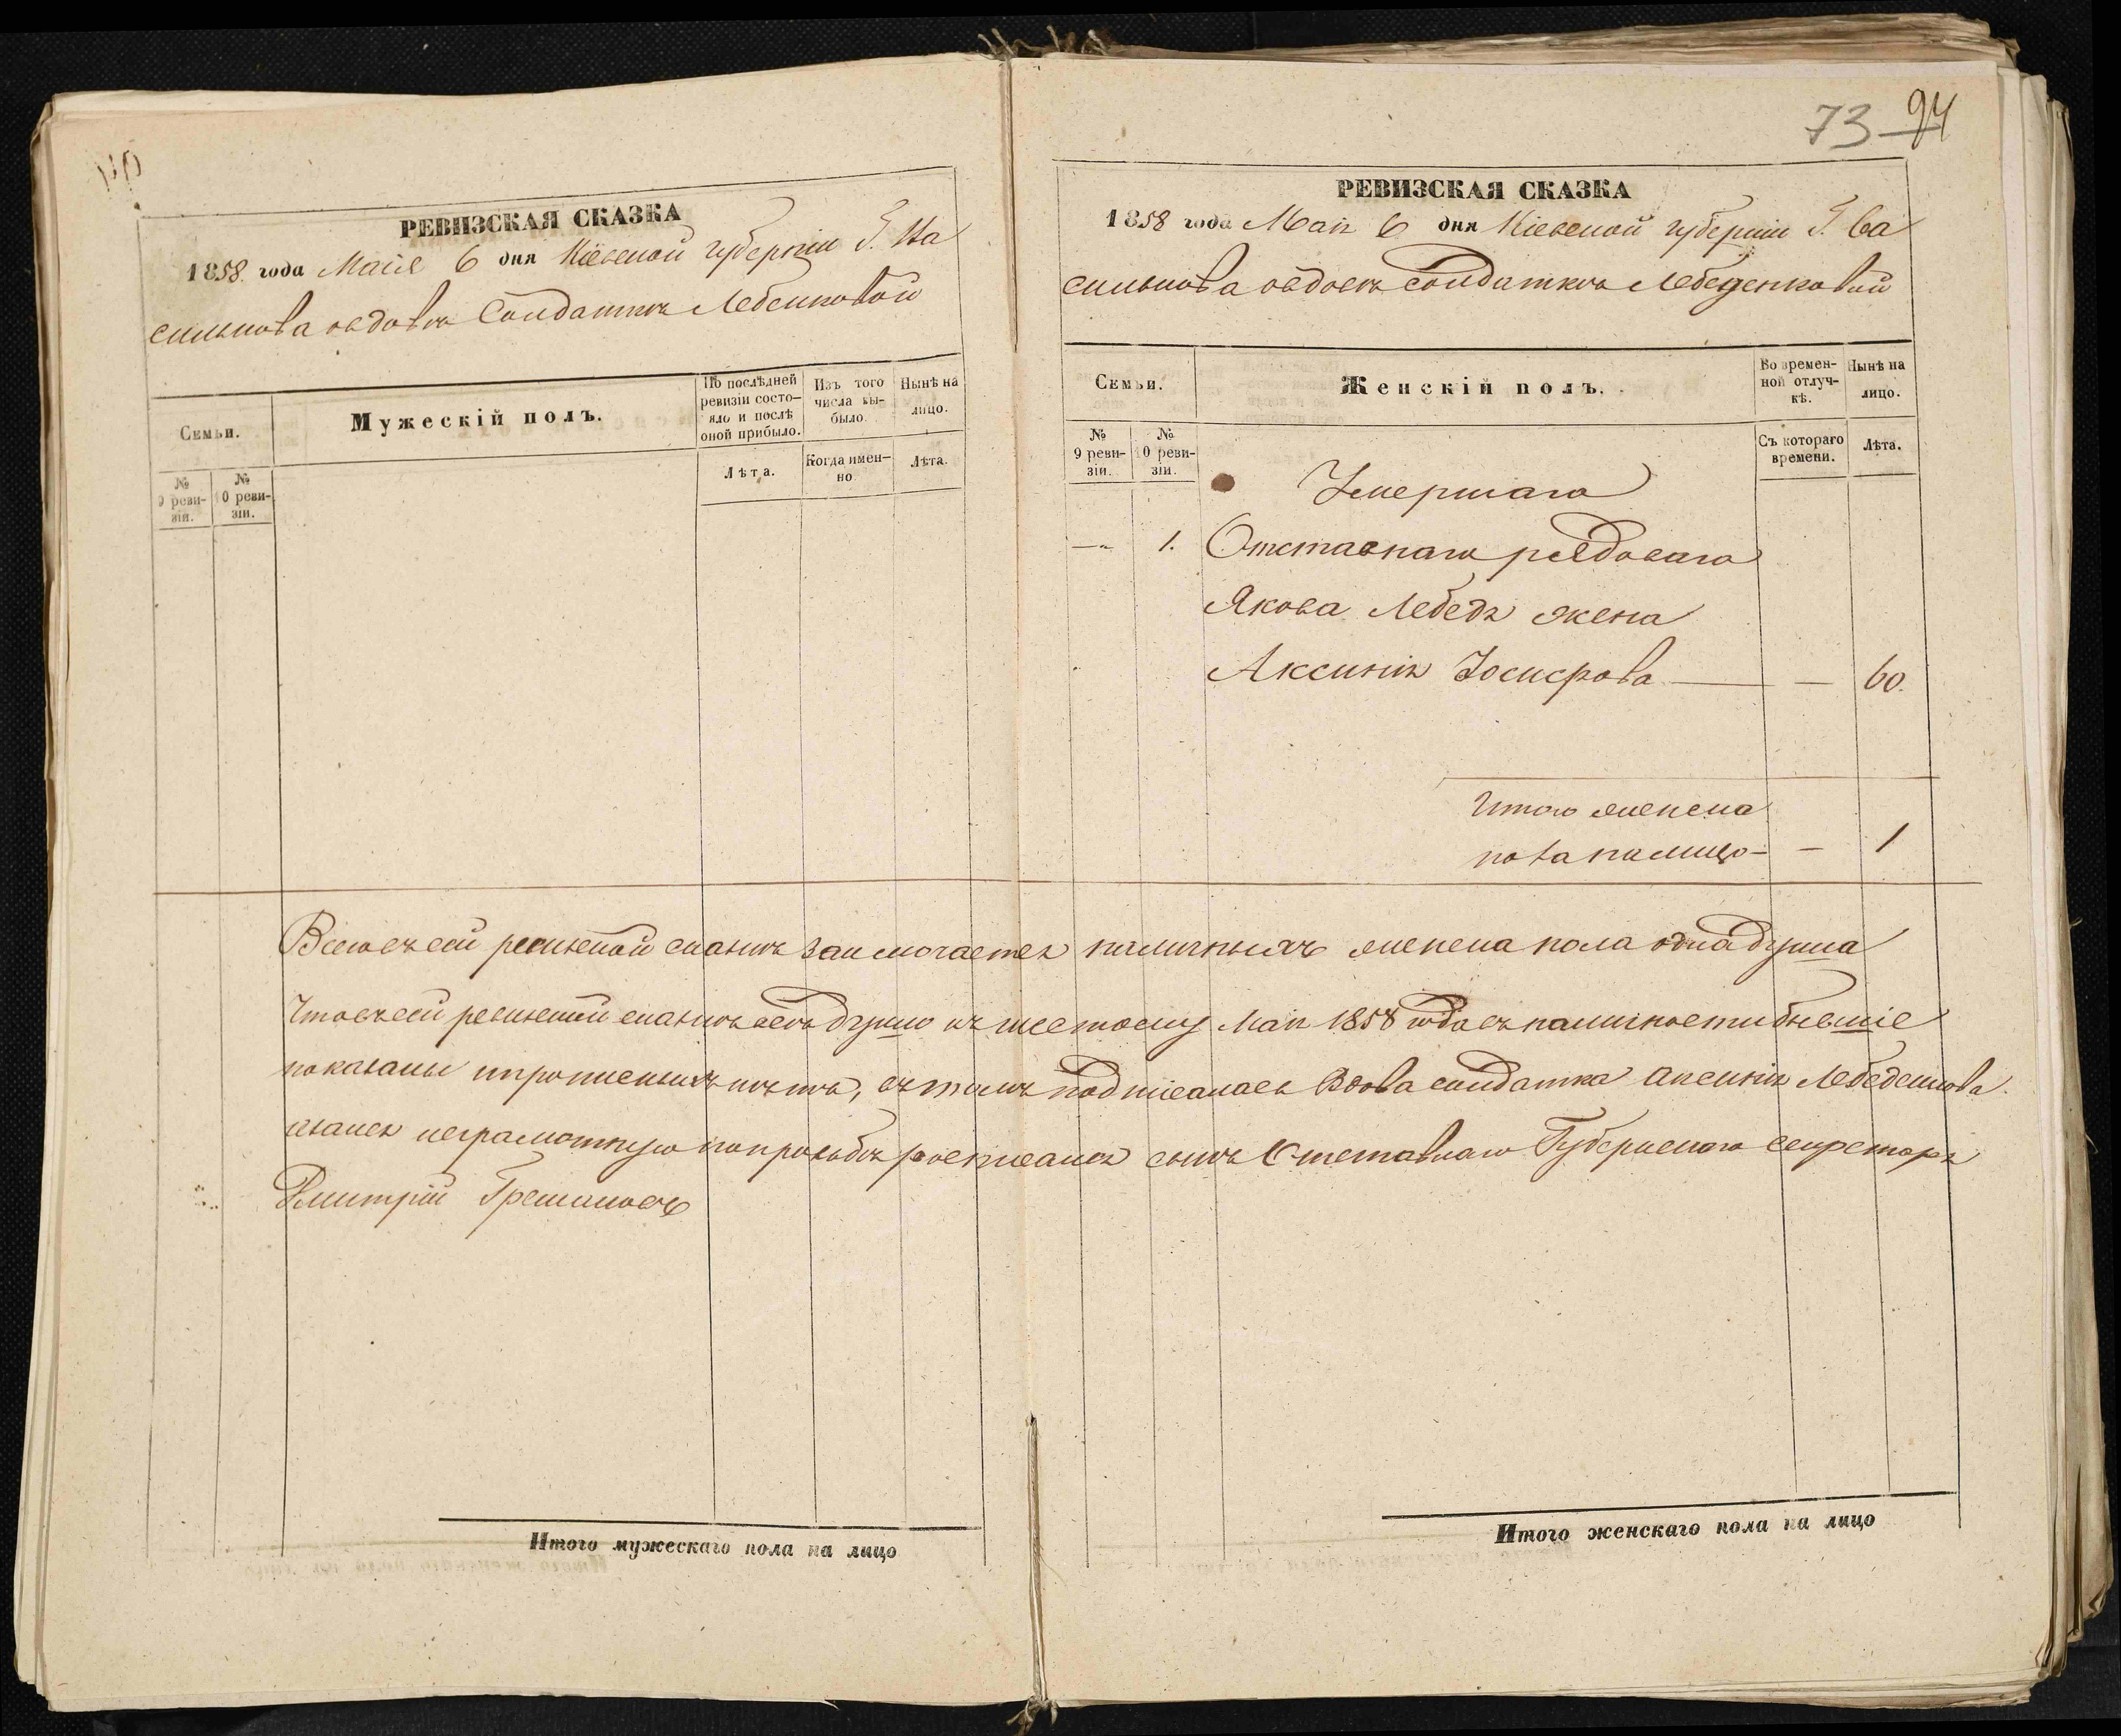 73 94
РЕВИЗСКАЯ СКАЗКА
1858 года Маія 6 дня Кіевской губерніи Г. Ва
силькова о вдовѣ Солдаткѣ Лебенковой
Семьи.
Мужескій полъ.
По послѣдней ревизіи состояло и послѣ оной прибыло.
Изъ того числа выбыло.
Нынѣ на лицо.
№ 9 ревизіи.
№ 10 ревизіи.
Лѣта.
Когда именно
Лѣта.
Итого мужескаго пола на лицо
РЕВИЗСКАЯ СКАЗКА
1858 года Мая 6 дня Кіевской губерніи Г. Ва
силькова о вдовѣ солдаткѣ Лебеденковой
Семьи.
Женскій полъ.
Во временной отлучкѣ.
Нынѣ на лицо.
№ 9 ревизіи.
№ 10 ревизіи.
Съ котораго времени.
Лѣта.
Умершаго
— 1. Отставнаго рядоваго
Якова Лебедя жена
Аксинія — — 60.
Итого женска
пола на лицо — — 1
Всего въ сей ревизской сказкѣ заключается наличныхъ женска пола одна душа
Что въ сей ревизской сказкѣ всѣ душы къ шестому Мая 1858 года въ наличности бывшіе
показаны и прописныхъ нѣтъ, въ томъ подписалась Вдова солдатка Аксинія Лебеденкова
а за нея неграмотную по прозьбѣ росписался сынъ Отставнаго Губернскаго Секретаря
Дмитрій
Итого женскаго пола на лицо